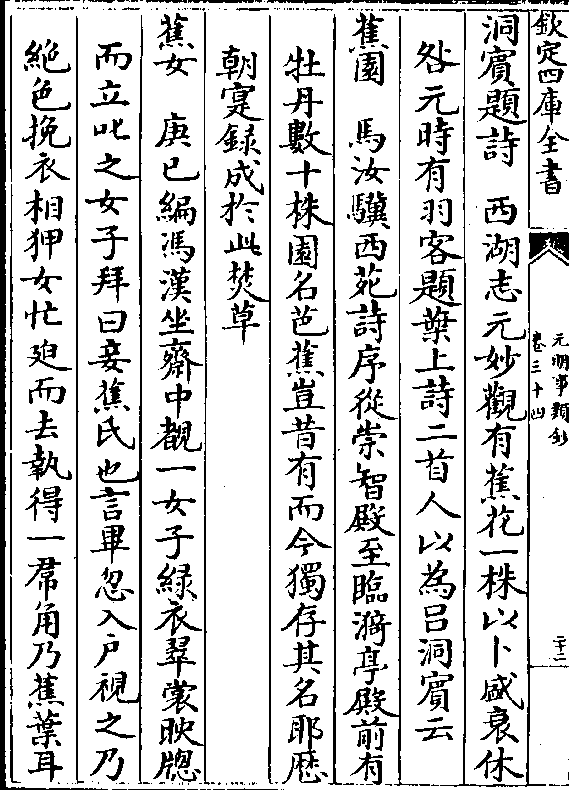 欽定四庫全書
元明事類鈔
卷三十四
二十二
洞賓題詩　西湖志元妙觀有蕉花一株以卜盛衰休
咎元時有羽客題葉上詩二首人以為呂洞賓云
蕉園　馬汝驥西苑詩序從崇智殿至臨漪亭殿前有
牡丹數十株園名芭蕉豈昔有而今獨存其名耶歴
朝寔録成於此焚草
蕉女　庚巳編馮漢坐齋中覩一女子緑衣翠裳映牎
而立叱之女子拜曰妾蕉氏也言畢忽入户視之乃
絶色挽衣相狎女忙迫而去執得一帬角乃蕉葉耳